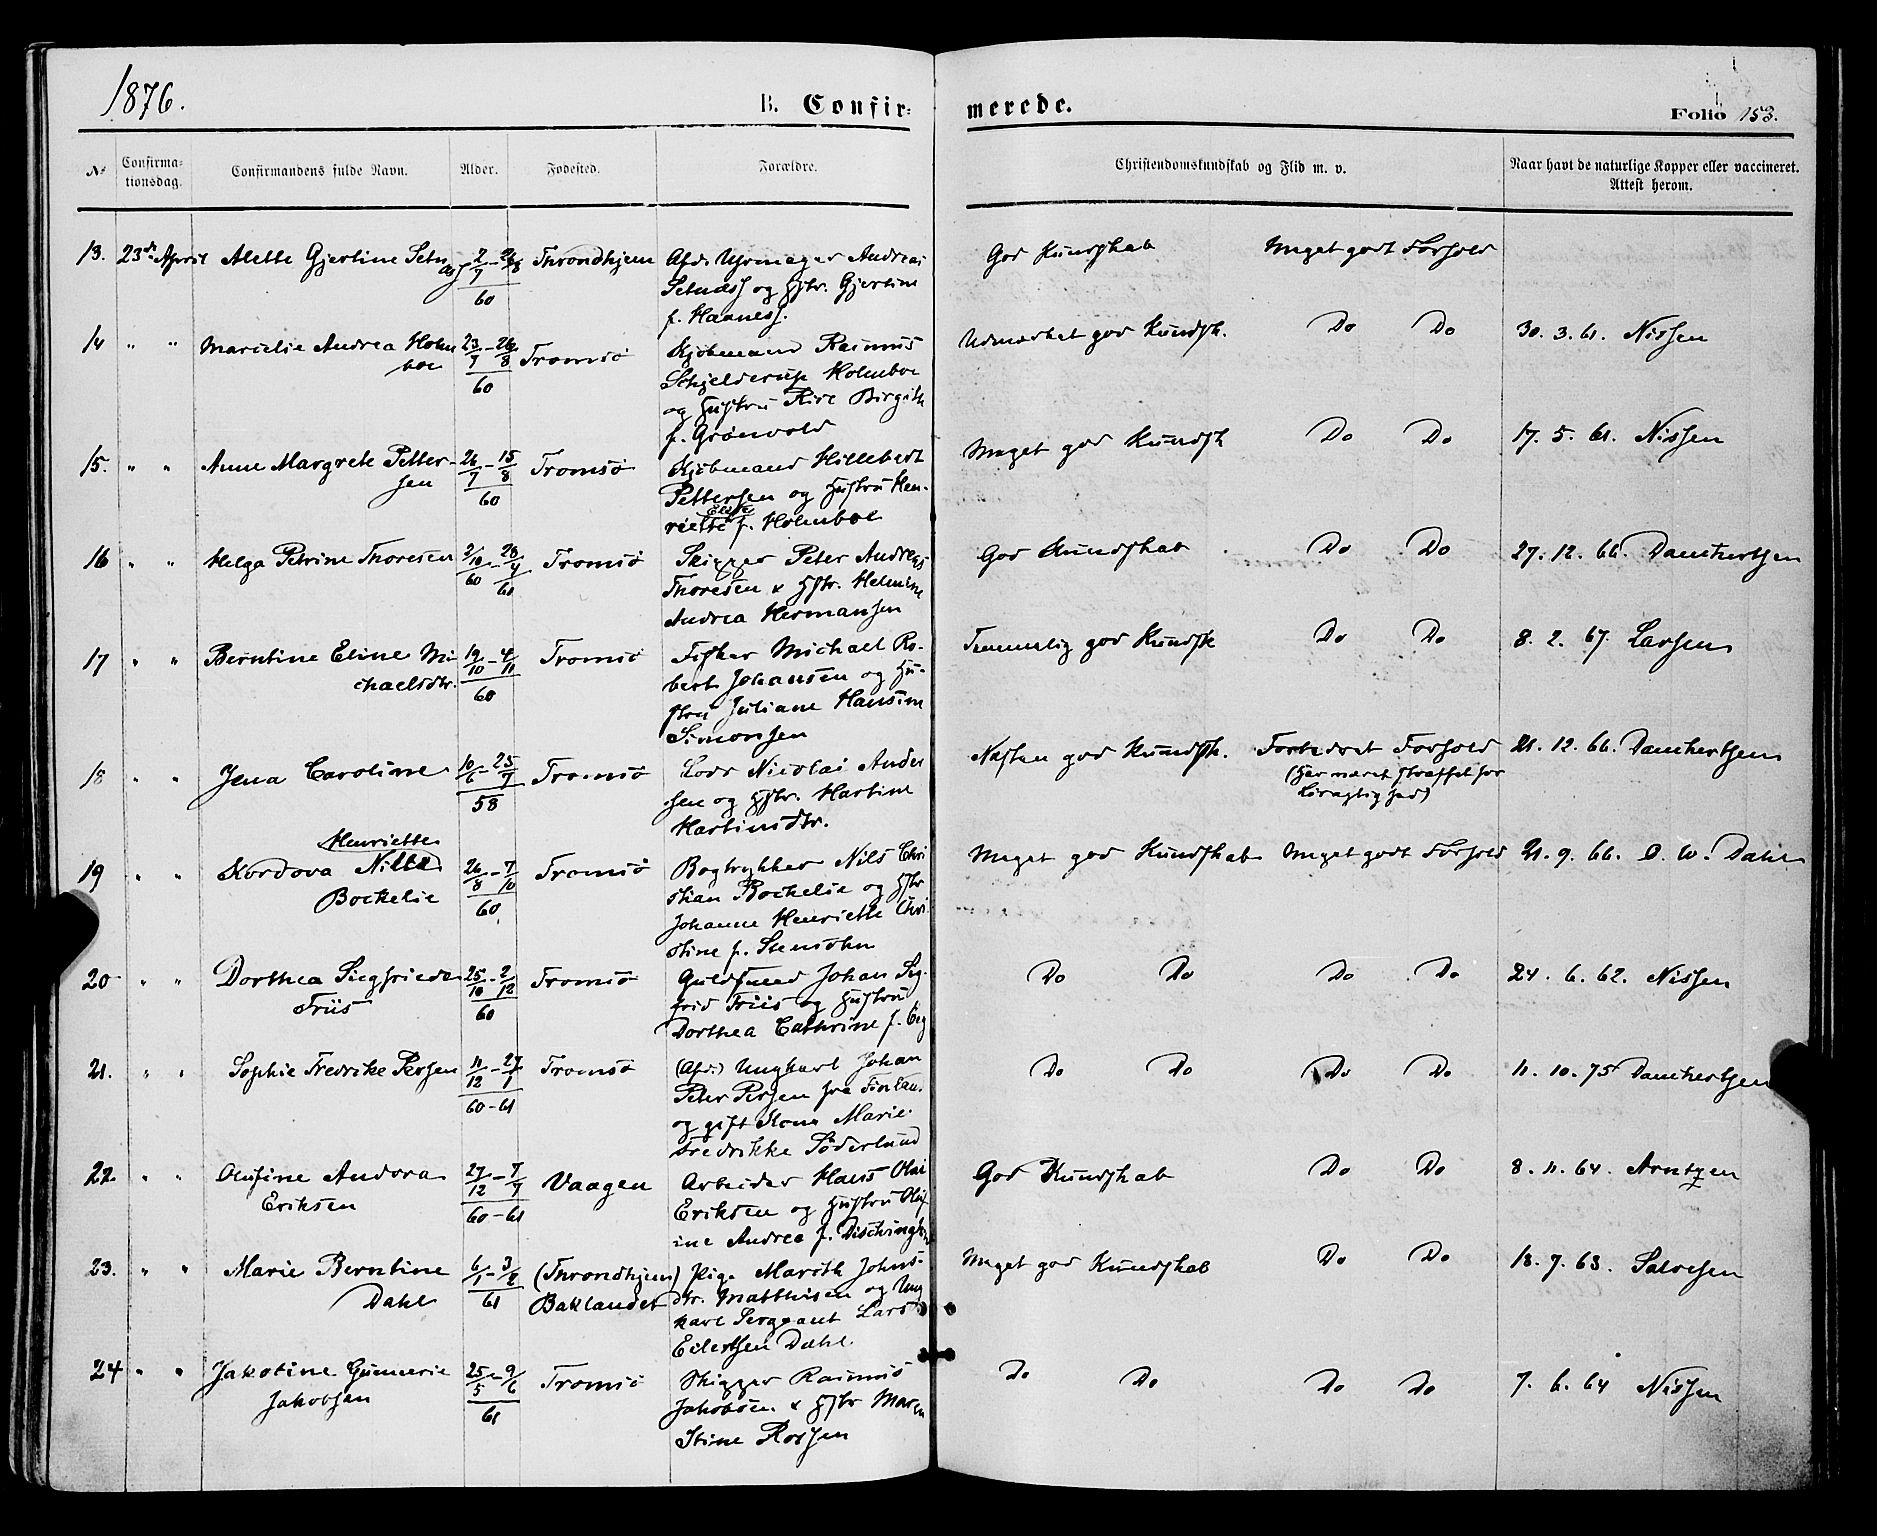 1876.
B. Confir-
merede.
Folio 153.
№
Confirma-
tionsdag.
Confirmandens fulde Navn.
Alder.
Fødested.
Forældre.
Christendomskundskab og Flid m. v.
Naar havt de naturlige Kopper eller vaccineret.
Attest herom.
13. 23de April Alette Gjertine Setn
æs 2/7 - 26/8 60 Throndhjem Afd. Uhrmager Andreas
Setnæss og Hstr. Gjertine
f. Haaness.
God Kundskab Meget godt Forhold
14 " " Marielie Andrea Holm
boe 23/7 - 26/8 60 Tromsö Kjöbmand Rasmus
Schjelderup Holmboe
og Hustru Birgitte
f. Grönvold
Udmærket god Kundsk. Do Do 30. 3. 61. Nissen
15. " " Anne Margrete Petter-
sen 26/7 - 15/8 60 Tromsö Kjöbmand Hillebert
Pettersen og Hustru Hen-
riette Elise f. Holmboe
Meget god Kundsk Do Do 17. 5. 61. Nissen
16 " " Helga Petrine Thoresen 2/10 60 - 28/4 61 Tromsö Skipper Peter Andreas
Thoresen & Hstr. Helmine
Andrea Hermansen
God Kundskab Do Do 27. 12. 66. Danchertsen
17 " " Berntine Eline Mi
chaelsdtr. 19/10 - 4/11 60 Tromsö Fisker Michael Ro-
bert Johansen og Hu-
stru Juliane Hansine
Simonsen
Temmelig god Kundsk Do Do 8. 2. 67. Larsen
18 " " Jena Caroline 10/6 - 25/7 58 Tromsö Lods Nicolai Ander
sen og Hstr. Martine
Martinsdtr.
Næsten god Kundsk. Forbedret Forhold 21. 12. 66. Danchertsen
(Har været straffet for
Løsagtighed)
19 " " Kordova Henriette Nilta
Bockelie 26/8 - 7/10 60 Tromsö Bogtrykker Nils Chri
stian Bockelie og Hstr
Johanne Henriette Chri
stine f. Stensohn
Meget god Kundskab Meget godt Forhold 21. 9. 66. O. W. Dahl
20 " " Dorthea Siegfriede
Friis 25/10 - 2/12 60 Tromsö Guldsmed Johan Sig-
frid Friis og Hustru
Dorthea Cathrine f.
Do Do Do Do 24. 6. 62. Nissen
21. " " Sophie Fredrike Persen 11/12 - 27/1 60 - 61 Tromsö (Afd.) Ungkarl Johan
Peter Persen fra Finlan.
og gift Kone Marie
Fredrikke Söderlund
Do Do Do Do 11. 10. 75 Danchertsen
22. " " Olufine Andora
Eriksen 27/12 - 7/7 60 - 61 Vaagen Arbeider Hans Olai
Eriksen og Hustru Oluf
ine Andrea f.
God Kundskab Do Do 8. 11. 64. Arntzen
23. " " Marie Berntine
Dahl 6/1 - 3/2 61 (Throndhjem)
Baklandet Pige Marith Johns-
dtr. Matthisen og Ung
karl Sergeant Lars
Eilertsen Dahl.
Meget god Kundskab Do Do 18. 7. 63. Salvesen
24 " " Jakobine Gunnerie
Jakobsen 25/5 - 9/6 61 Tromsö Skipper Rasmus
Jakobsen & Hstr Maren
Stine Rossen
Do Do Do Do 7. 6. 64 Nissen